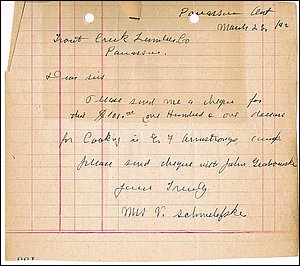 Powassan Ont
March 23, /42
Trout Creek Lumber Co
Powassan.
Dear sirs
Please send me a cheque for
this $101.00 one Hundred & one dollars
for Cooking in E. F Armstrongs camp
please send cheque with John Grabowski
yours Truly
Mrs V. Schmelefske